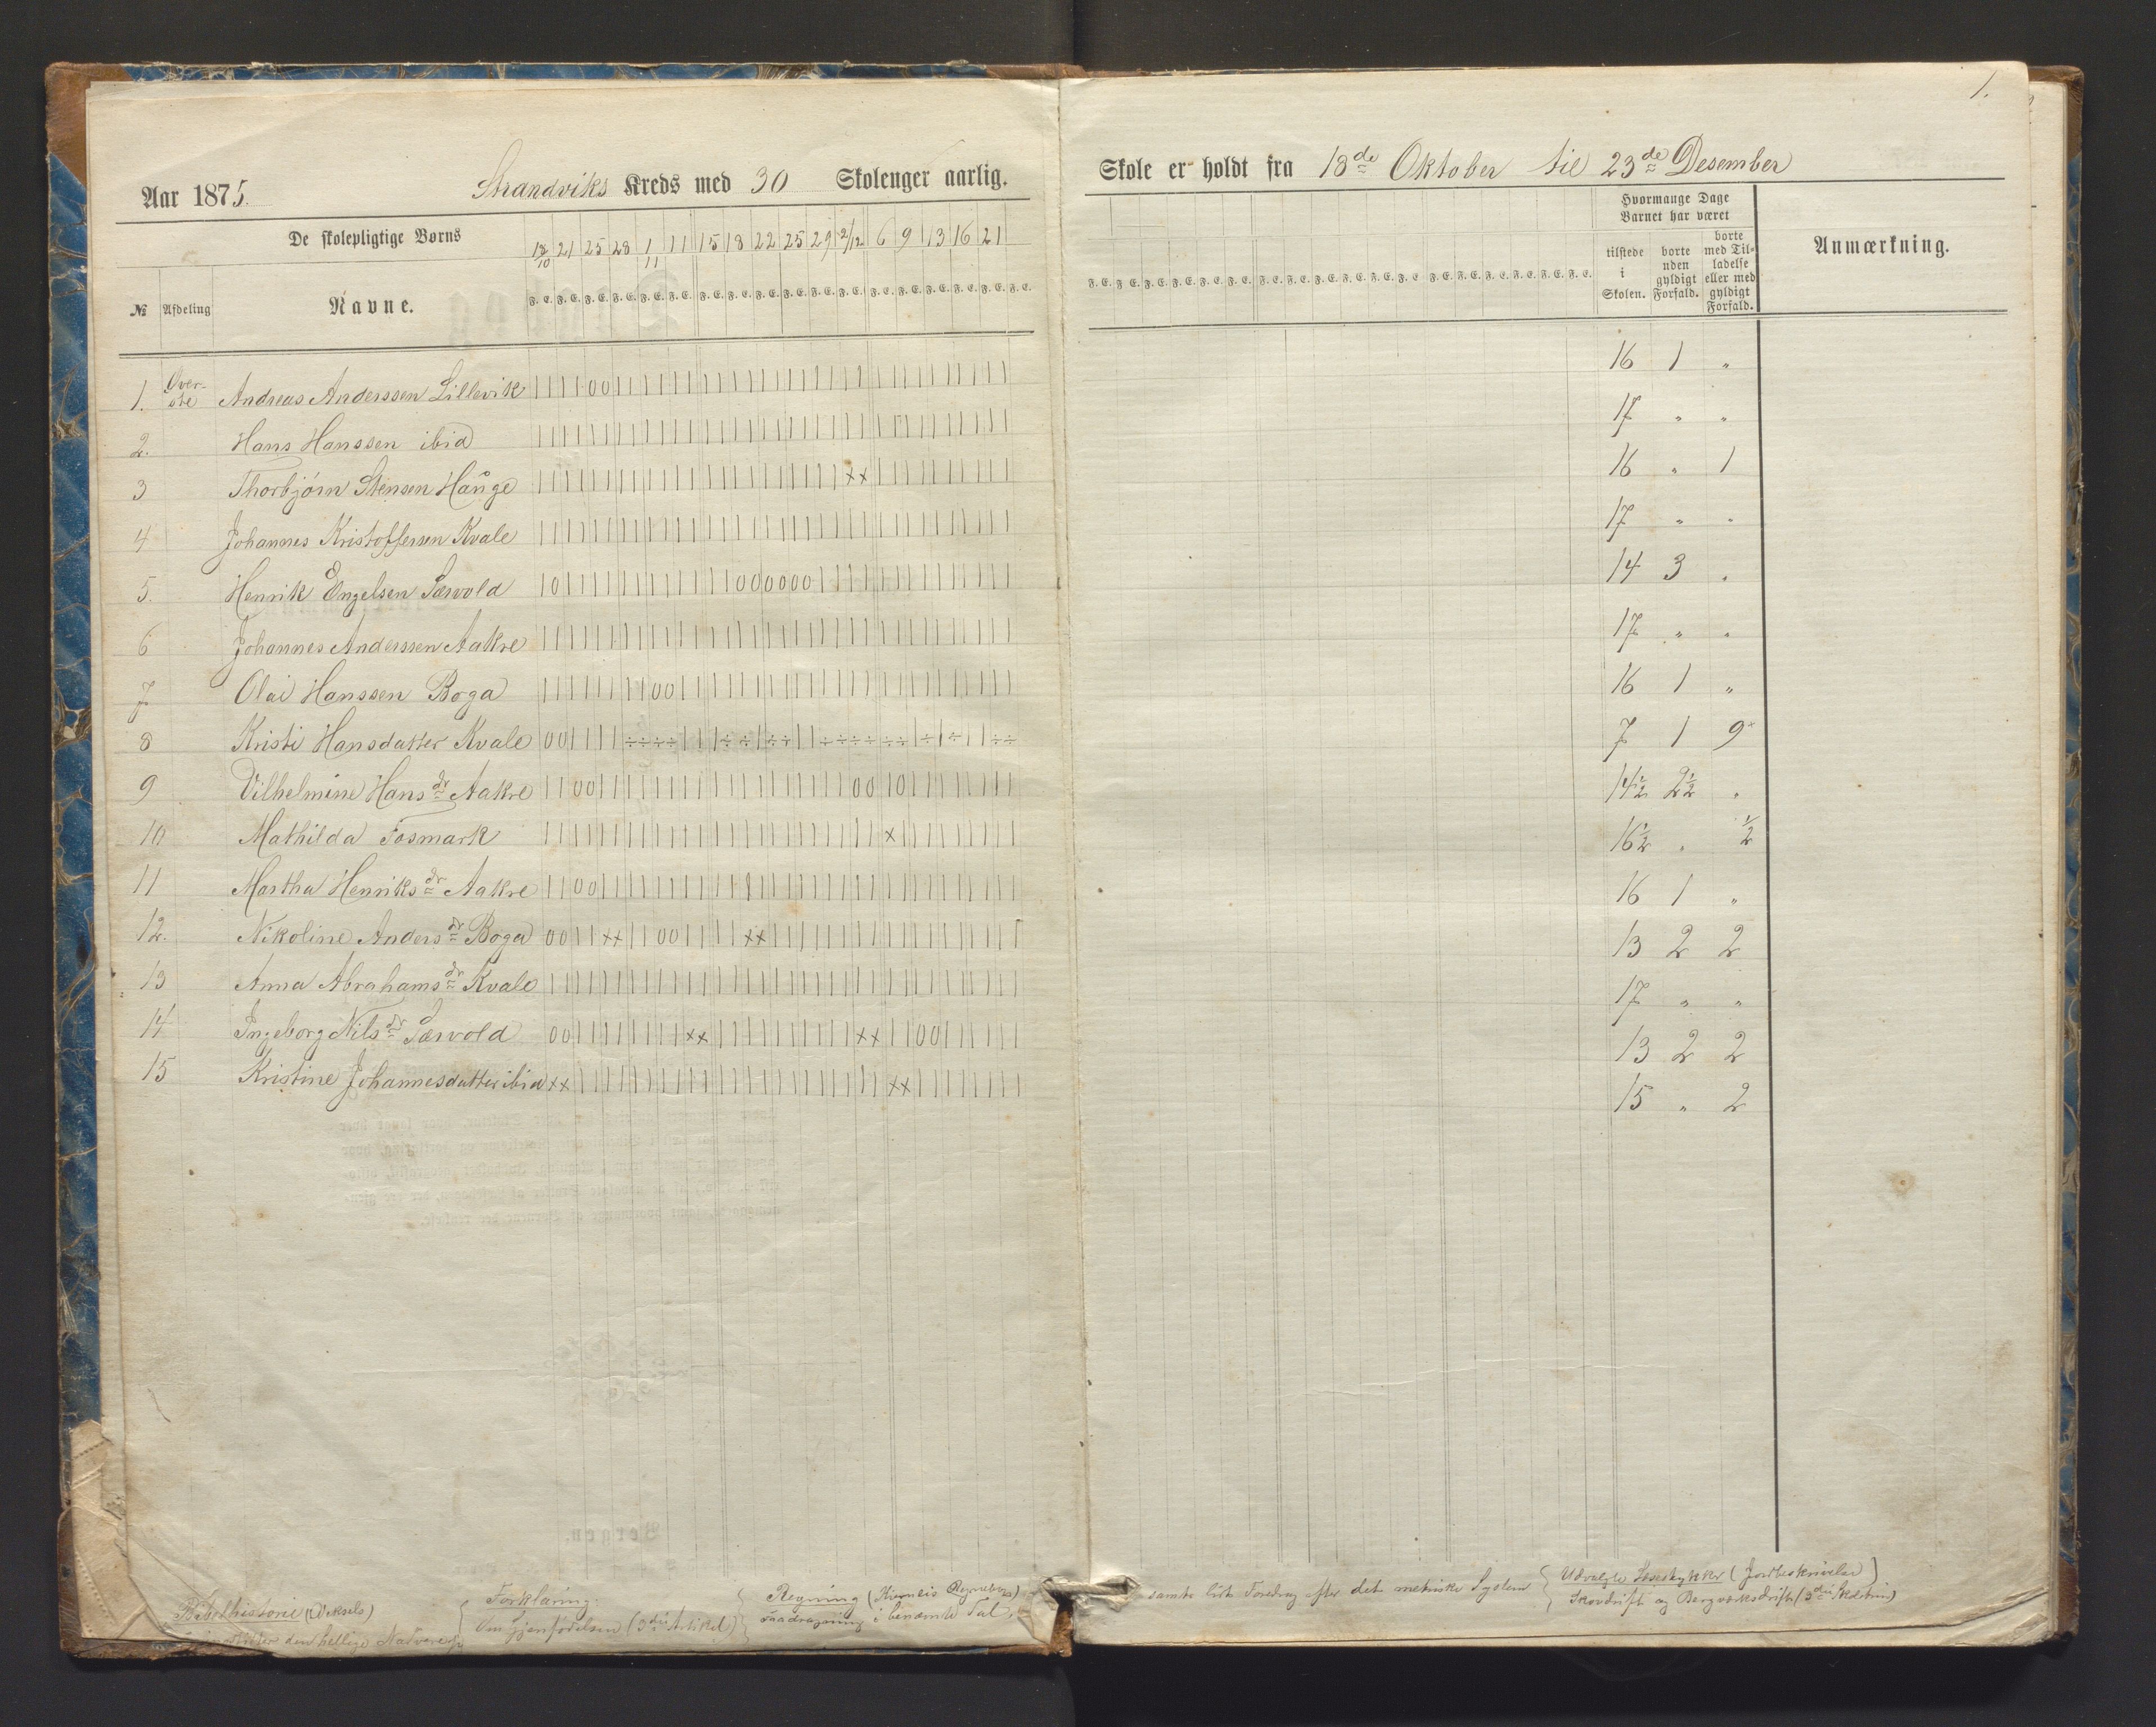 1.
Aar 1875. Strandviks Kreds med 30 Skoleuger aarlig.
Skole er holdt fra 18de Oktober til 23de Desember
De skolepligtige Børns
18/10 21 25 28 1/11 11 15 18 22 25 29 2/12 6 9 13 16 21
Hvormange Dage Barnet har været
№ Afdeling Navne.
F. E. F. E. F. E. F. E. F. E. F. E. F. E. F. E. F. E. F. E. F. E. F. E. F. E. F. E. F. E. F. E. F. E. F. E.
tilstede i Skolen.
borte uden gyldigt Forfald.
borte med Tilladelse eller med gyldigt Forfald.
Anmærkning.
1. Øverste Andreas Anderssen Lillevik 16 1 "
2. Hans Hanssen ibid 17 " "
3 Thorbjørn Stensen Hauge 16 " 1
4 Johannes Kristoffersen Kvale 17 " "
5. Henrik Engelsen Sævold 14 3 "
6 Johannes Anderssen Aakre 17 " "
7 Olai Hanssen Boga 16 1 "
8 Kristi Hansdatter Kvale 7 1 9
9 Vilhelmine Hansdr Aakre 14½ 2½ "
10 Mathilda Fosmark 16½ " ½
11 Martha Henriksdr Aakre 16 1 "
12. Nikoline Andersdr Boga 13 2 2
13 Anna Abrahamsdr Kvale 17 " "
14 Ingeborg Nilsdr Sævold 13 2 2
15 Kristine Johannesdatter ibid 15 " 2
Bibelhistorie (Veksels)
den hellige Nadvere
Forklaring:
Om Gjenfødelsen (3die Artikel)
Regning
Fradragning i benævnte Tal,
samt lidt Foredrag efter det metriske System
Udvalgte Læsestykker (Jordbeskrivelse)
Skovdrift og Bergværksdrift (3die Skoletrin)